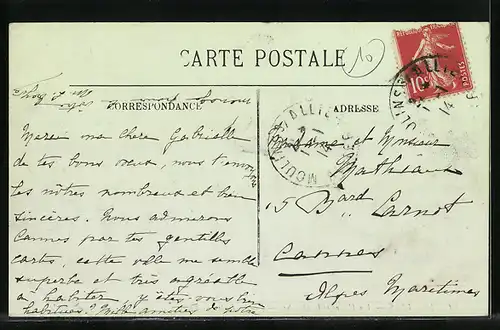 CARTE POSTALE
10
CORRESPONDANCE
ADRESSE
REPUBLIQUE FRANÇAISE
10c
POSTES
MOULINS ALLIER
Merci ma chère Gabrielle
de tes bons vœux, nous t'envoyons
les nôtres nombreux et bien
sincères. Nous admirons
Cannes par tes gentilles
cartes, cette ville me semble
superbe et très agréable
à habiter y êtes vous bien
habitués? Mille amitiés de
Madame et Monsieur
Mathieu
15 Bard Carnot
Cannes
Alpes Maritimes